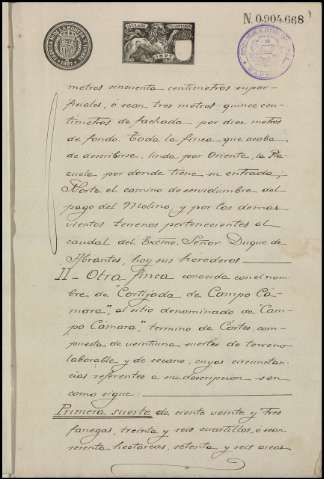 N. 0.904.668
metros cincuenta centímetros super-
ficiales, ó sean tres metros quince cen-
tímetros de fachada por diez metros
de fondo. Toda la finca que acaba
de describirse, linda por Oriente, la Pla-
zuela por donde tiene su entrada;
Norte el camino de servidumbre del
pago del Molino, y por los demás
vientos terrenos pertenecientes al
caudal del Excmo. Señor Duque de
Abrantes, hoy sus herederos
II - Otra finca conocida con el nom-
bre de "Cortijada de Campo Cá-
mara", al sitio denominado de "Cam-
po Cámara," término de Cortes com-
puesta de veintiuna suertes de terreno
laborable y de secano, cuyas circunstan-
cias referentes a su descripción son
como sigue
Primera suerte de ciento veinte y tres
fanegas, treinta y seis cuartillos, ó sean
sesenta hectáreas, setenta y seis areas